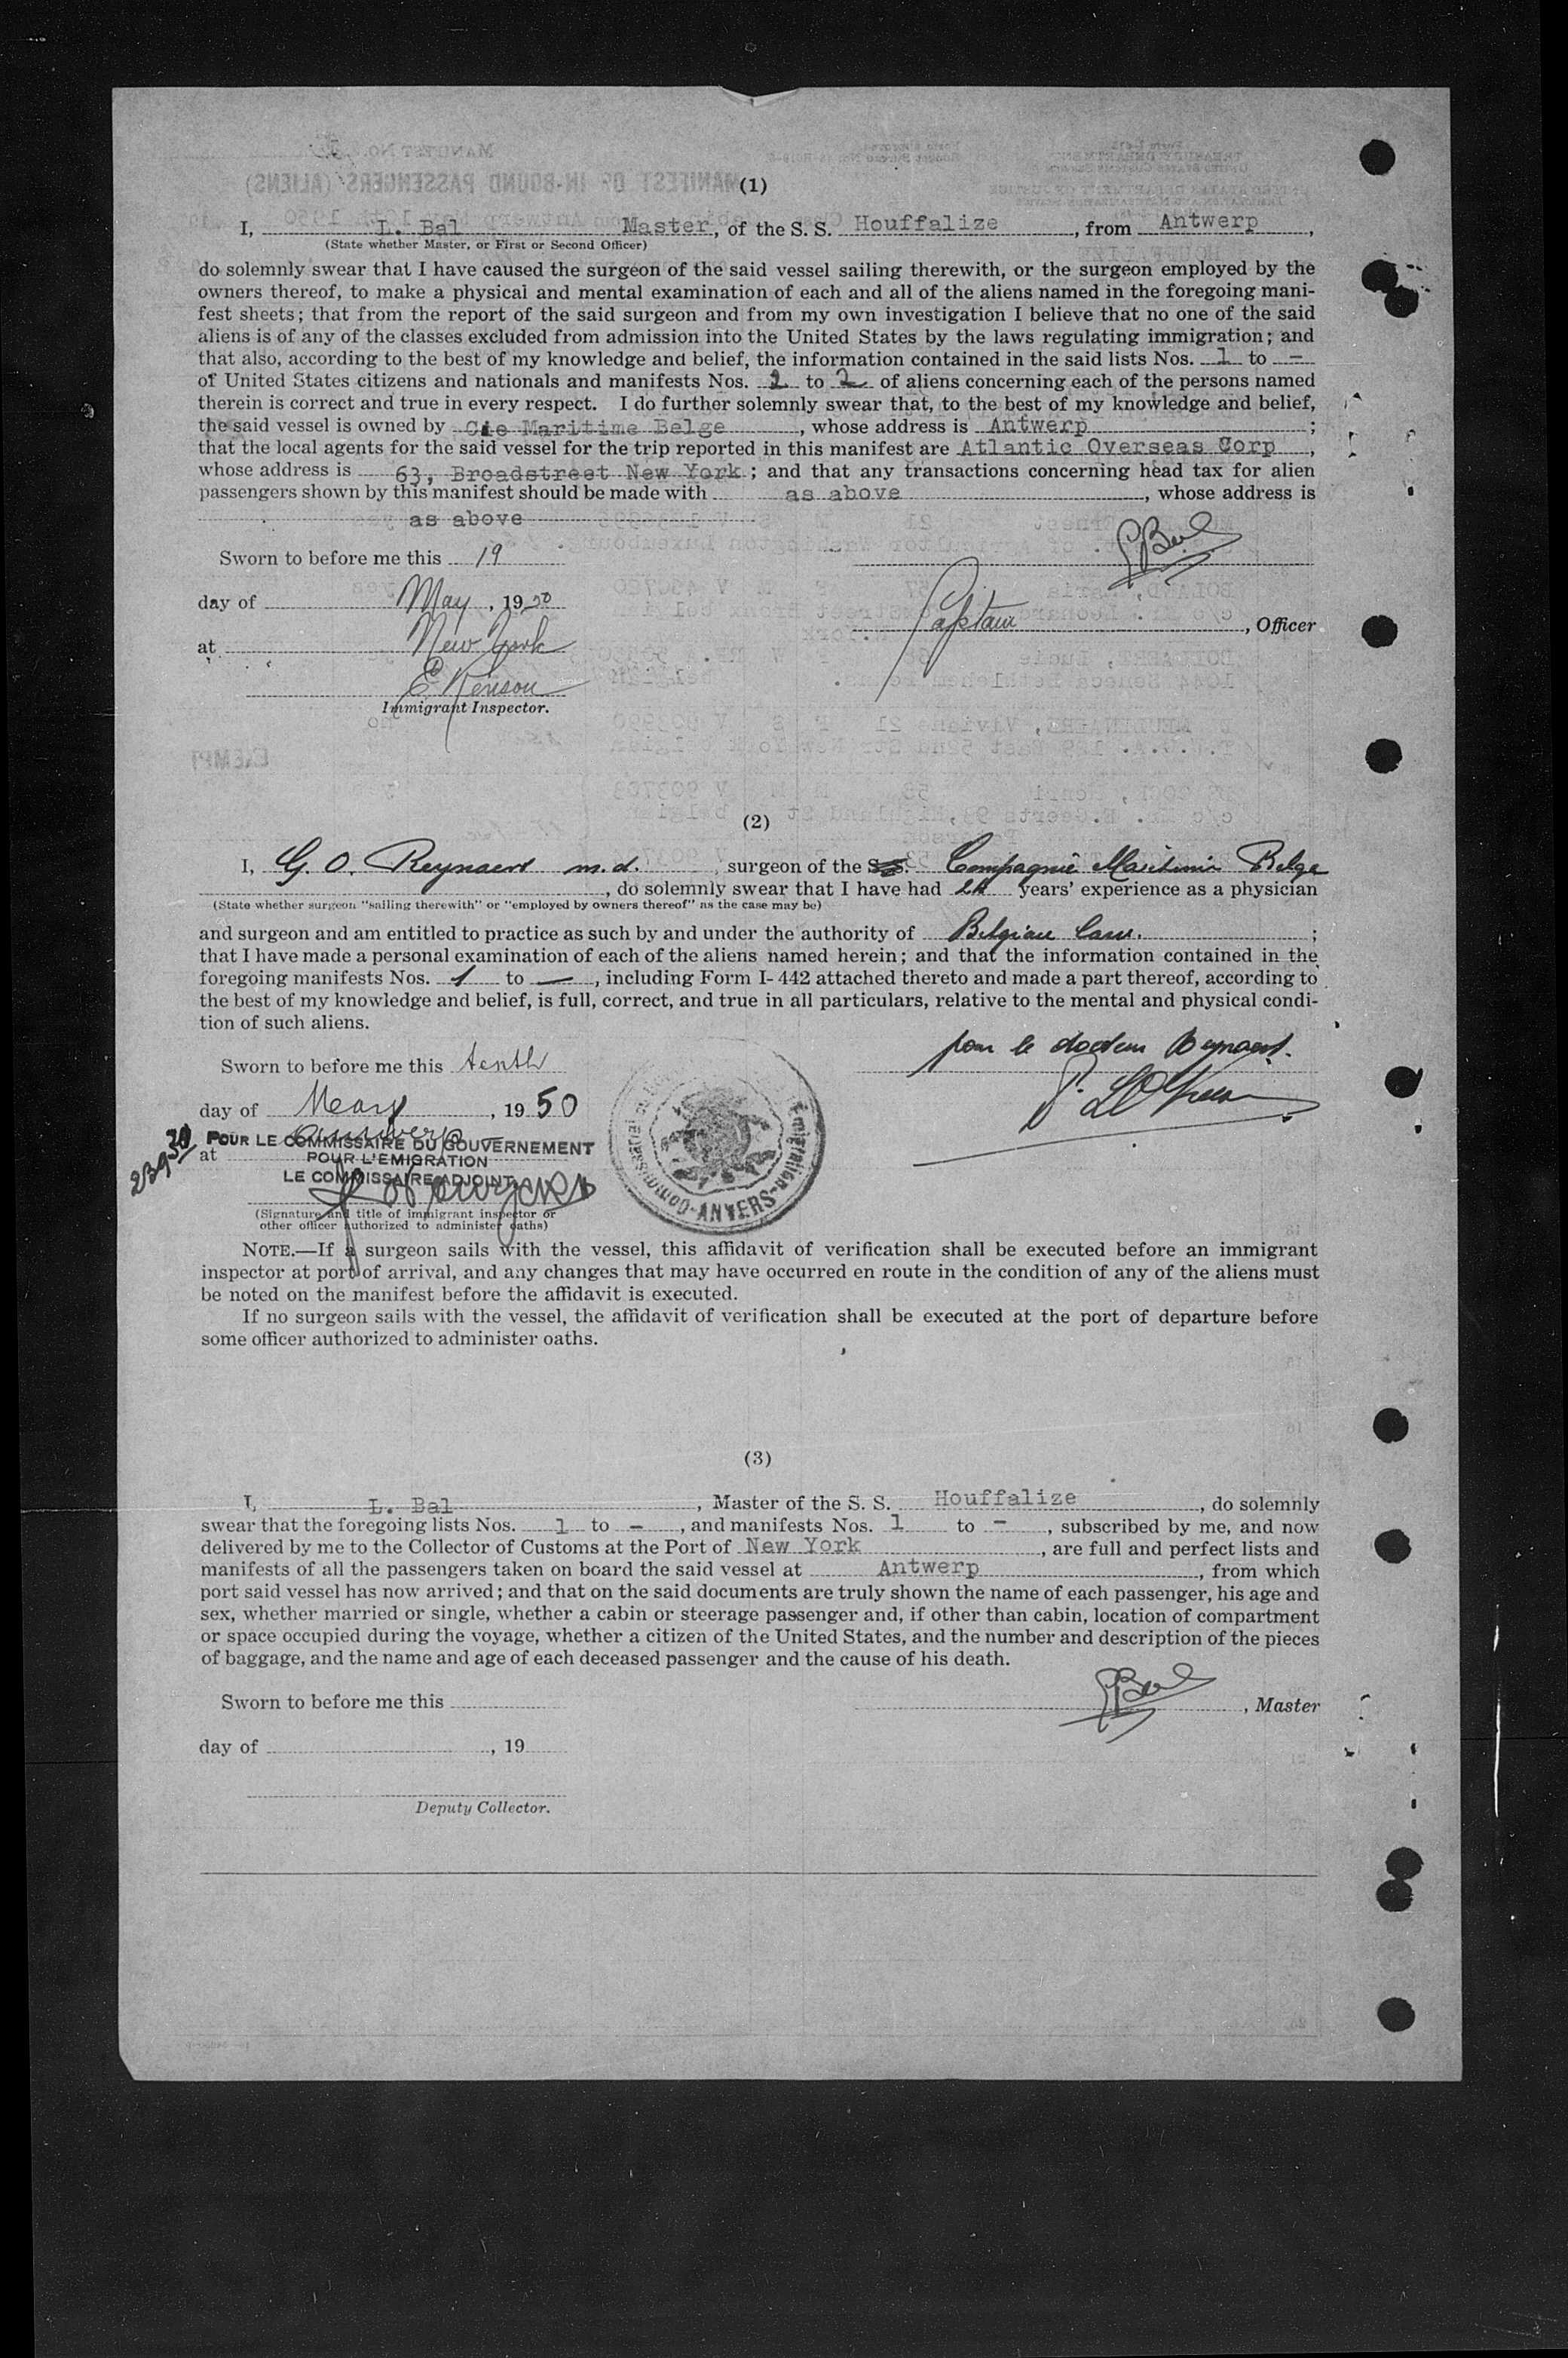 (1)
I, L. Bal Master, of the S. S. Houffalize, from Antwerp,
(State whether Master, or First or Second Officer)
do solemnly swear that I have caused the surgeon of the said vessel sailing therewith, or the surgeon employed by the
owners thereof, to make a physical and mental examination of each and all of the aliens named in the foregoing mani-
fest sheets; that from the report of the said surgeon and from my own investigation I believe that no one of the said
aliens is of any of the classes excluded from admission into the United States by the laws regulating immigration; and
that also, according to the best of my knowledge and belief, the information contained in the said lists Nos. 1 to –
of United States citizens and nationals and manifests Nos. to 2 of aliens concerning each of the persons named
therein is correct and true in every respect. I do further solemnly swear that, to the best of my knowledge and belief,
the said vessel is owned by Cie Maritime Belge, whose address is Antwerp;
that the local agents for the said vessel for the trip reported in this manifest are Atlantic Overseas Corp,
whose address is 63, Broadstreet New York; and that any transactions concerning head tax for alien
passengers shown by this manifest should be made with as above, whose address is
as above
Sworn to before me this 19
day of May, 1950
Captain, Officer
at New York
E. Renson
Immigrant Inspector.
(2)
I, G. O. Reynaert m.d. surgeon of the S.S. Compagnie Maritime Belge
, do solemnly swear that I have had years' experience as a physician
(State whether surgeon "sailing therewith" or "employed by owners thereof" as the case may be)
and surgeon and am entitled to practice as such by and under the authority of Belgian Law.;
that I have made a personal examination of each of the aliens named herein; and that the information contained in the
foregoing manifests Nos. 1 to —, including Form I-442 attached thereto and made a part thereof, according to
the best of my knowledge and belief, is full, correct, and true in all particulars, relative to the mental and physical condi-
tion of such aliens.
pour le docteur Reynaert.
Sworn to before me this tenth
day of May, 1950
at Antwerp
POUR LE COMMISSAIRE DU GOUVERNEMENT
POUR L'EMIGRATION
LE COMMISSAIRE ADJOINT
ANVERS
(Signature and title of immigrant inspector or
other officer authorized to administer oaths)
NOTE.—If a surgeon sails with the vessel, this affidavit of verification shall be executed before an immigrant
inspector at port of arrival, and any changes that may have occurred en route in the condition of any of the aliens must
be noted on the manifest before the affidavit is executed.
If no surgeon sails with the vessel, the affidavit of verification shall be executed at the port of departure before
some officer authorized to administer oaths.
(3)
I, L. Bal, Master of the S. S. Houffalize, do solemnly
swear that the foregoing lists Nos. 1 to –, and manifests Nos. 1 to –, subscribed by me, and now
delivered by me to the Collector of Customs at the Port of New York, are full and perfect lists and
manifests of all the passengers taken on board the said vessel at Antwerp, from which
port said vessel has now arrived; and that on the said documents are truly shown the name of each passenger, his age and
sex, whether married or single, whether a cabin or steerage passenger and, if other than cabin, location of compartment
or space occupied during the voyage, whether a citizen of the United States, and the number and description of the pieces
of baggage, and the name and age of each deceased passenger and the cause of his death.
Sworn to before me this
LBal, Master
day of , 19
Deputy Collector.